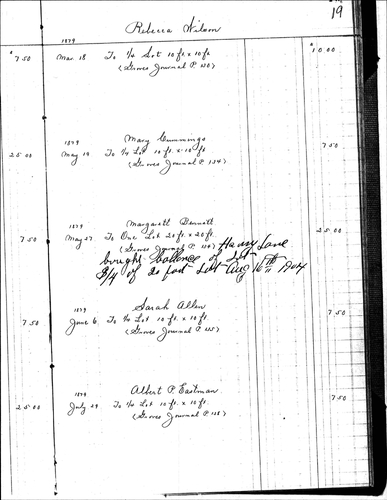 19
Rebecca Wilson
1879
7 50 Mar. 18 To 1/4 Lot 10 ft. x 10 ft. $ 10 00
(Groves Journal P. 120)
Mary Cummings
1879
25 00 May 19 To 1/4 Lot 10 ft. x 10 ft. 7 50
(Groves Journal P. 124)
Margarett Bennett
1879
7 50 May 27 To One Lot 20 ft. x 20 ft. 25 00
(Groves Journal P.
Harvy Lane
bought ballence of Lot
3/4 of 20 foot Lot Aug 16th 1904
Sarah Allen
1879
7 50 June 6 To 1/4 Lot 10 ft. x 10 ft. 7 50
(Groves Journal P. 125)
Albert P. Eastman
1879
25 00 July 29 To 1/4 Lot 10 ft. x 10 ft. 7 50
(Groves Journal P. 128)